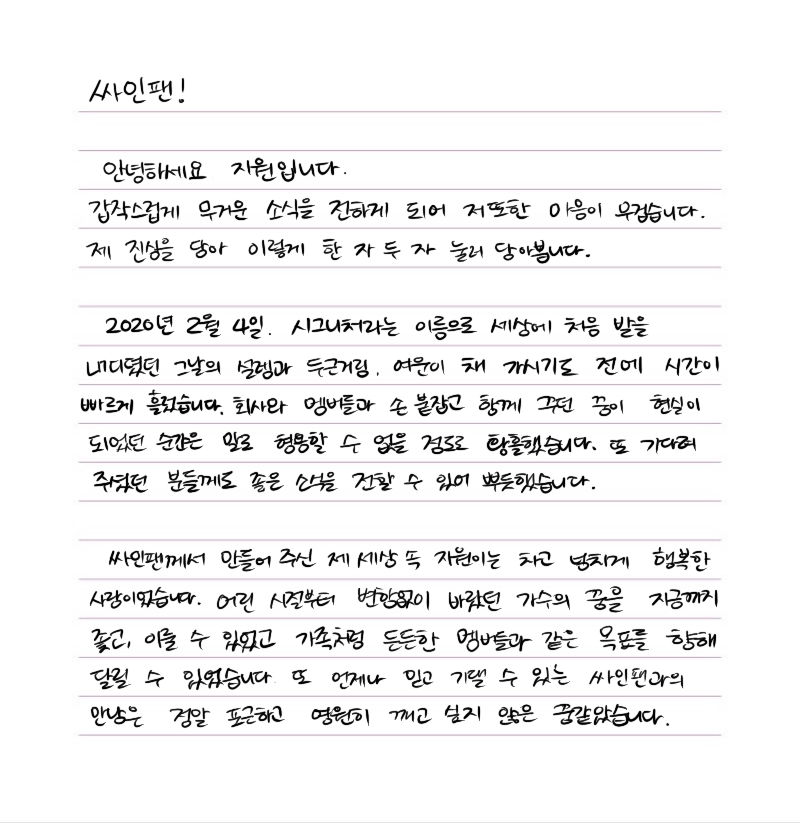 싸인팬!
안녕하세요 지원입니다.
갑작스럽게 무거운 소식을 전하게 되어 저또한 마음이 무겁습니다.
제 진심을 담아 이렇게 한 자 두 자 눌러 담아봅니다.
2020년 2월 4일. 시그니처라는 이름으로 세상에 처음 발을
내디뎠던 그날의 설렘과 두근거림. 여운이 채 가시기도 전에 시간이
빠르게 흘렀습니다. 회사와 멤버들과 손 붙잡고 함께 꾸던 꿈이 현실이
되었던 순간은 말로 형용할 수 없을 정도로 황홀했습니다. 또 기다려
주셨던 분들께도 좋은 소식을 전할 수 있어 뿌듯했습니다.
싸인팬께서 만들어 주신 제 세상 속 지원이는 차고 넘치게 행복한
사람이었습니다. 어린 시절부터 변함없이 바랐던 가수의 꿈을 지금까지
좇고, 이룰 수 있었고 가족처럼 든든한 멤버들과 같은 목표를 향해
달릴 수 있었습니다. 또 언제나 믿고 기댈 수 있는 싸인팬과의
만남은 정말 포근하고 영원히 깨고 싶지 않은 꿈같았습니다.